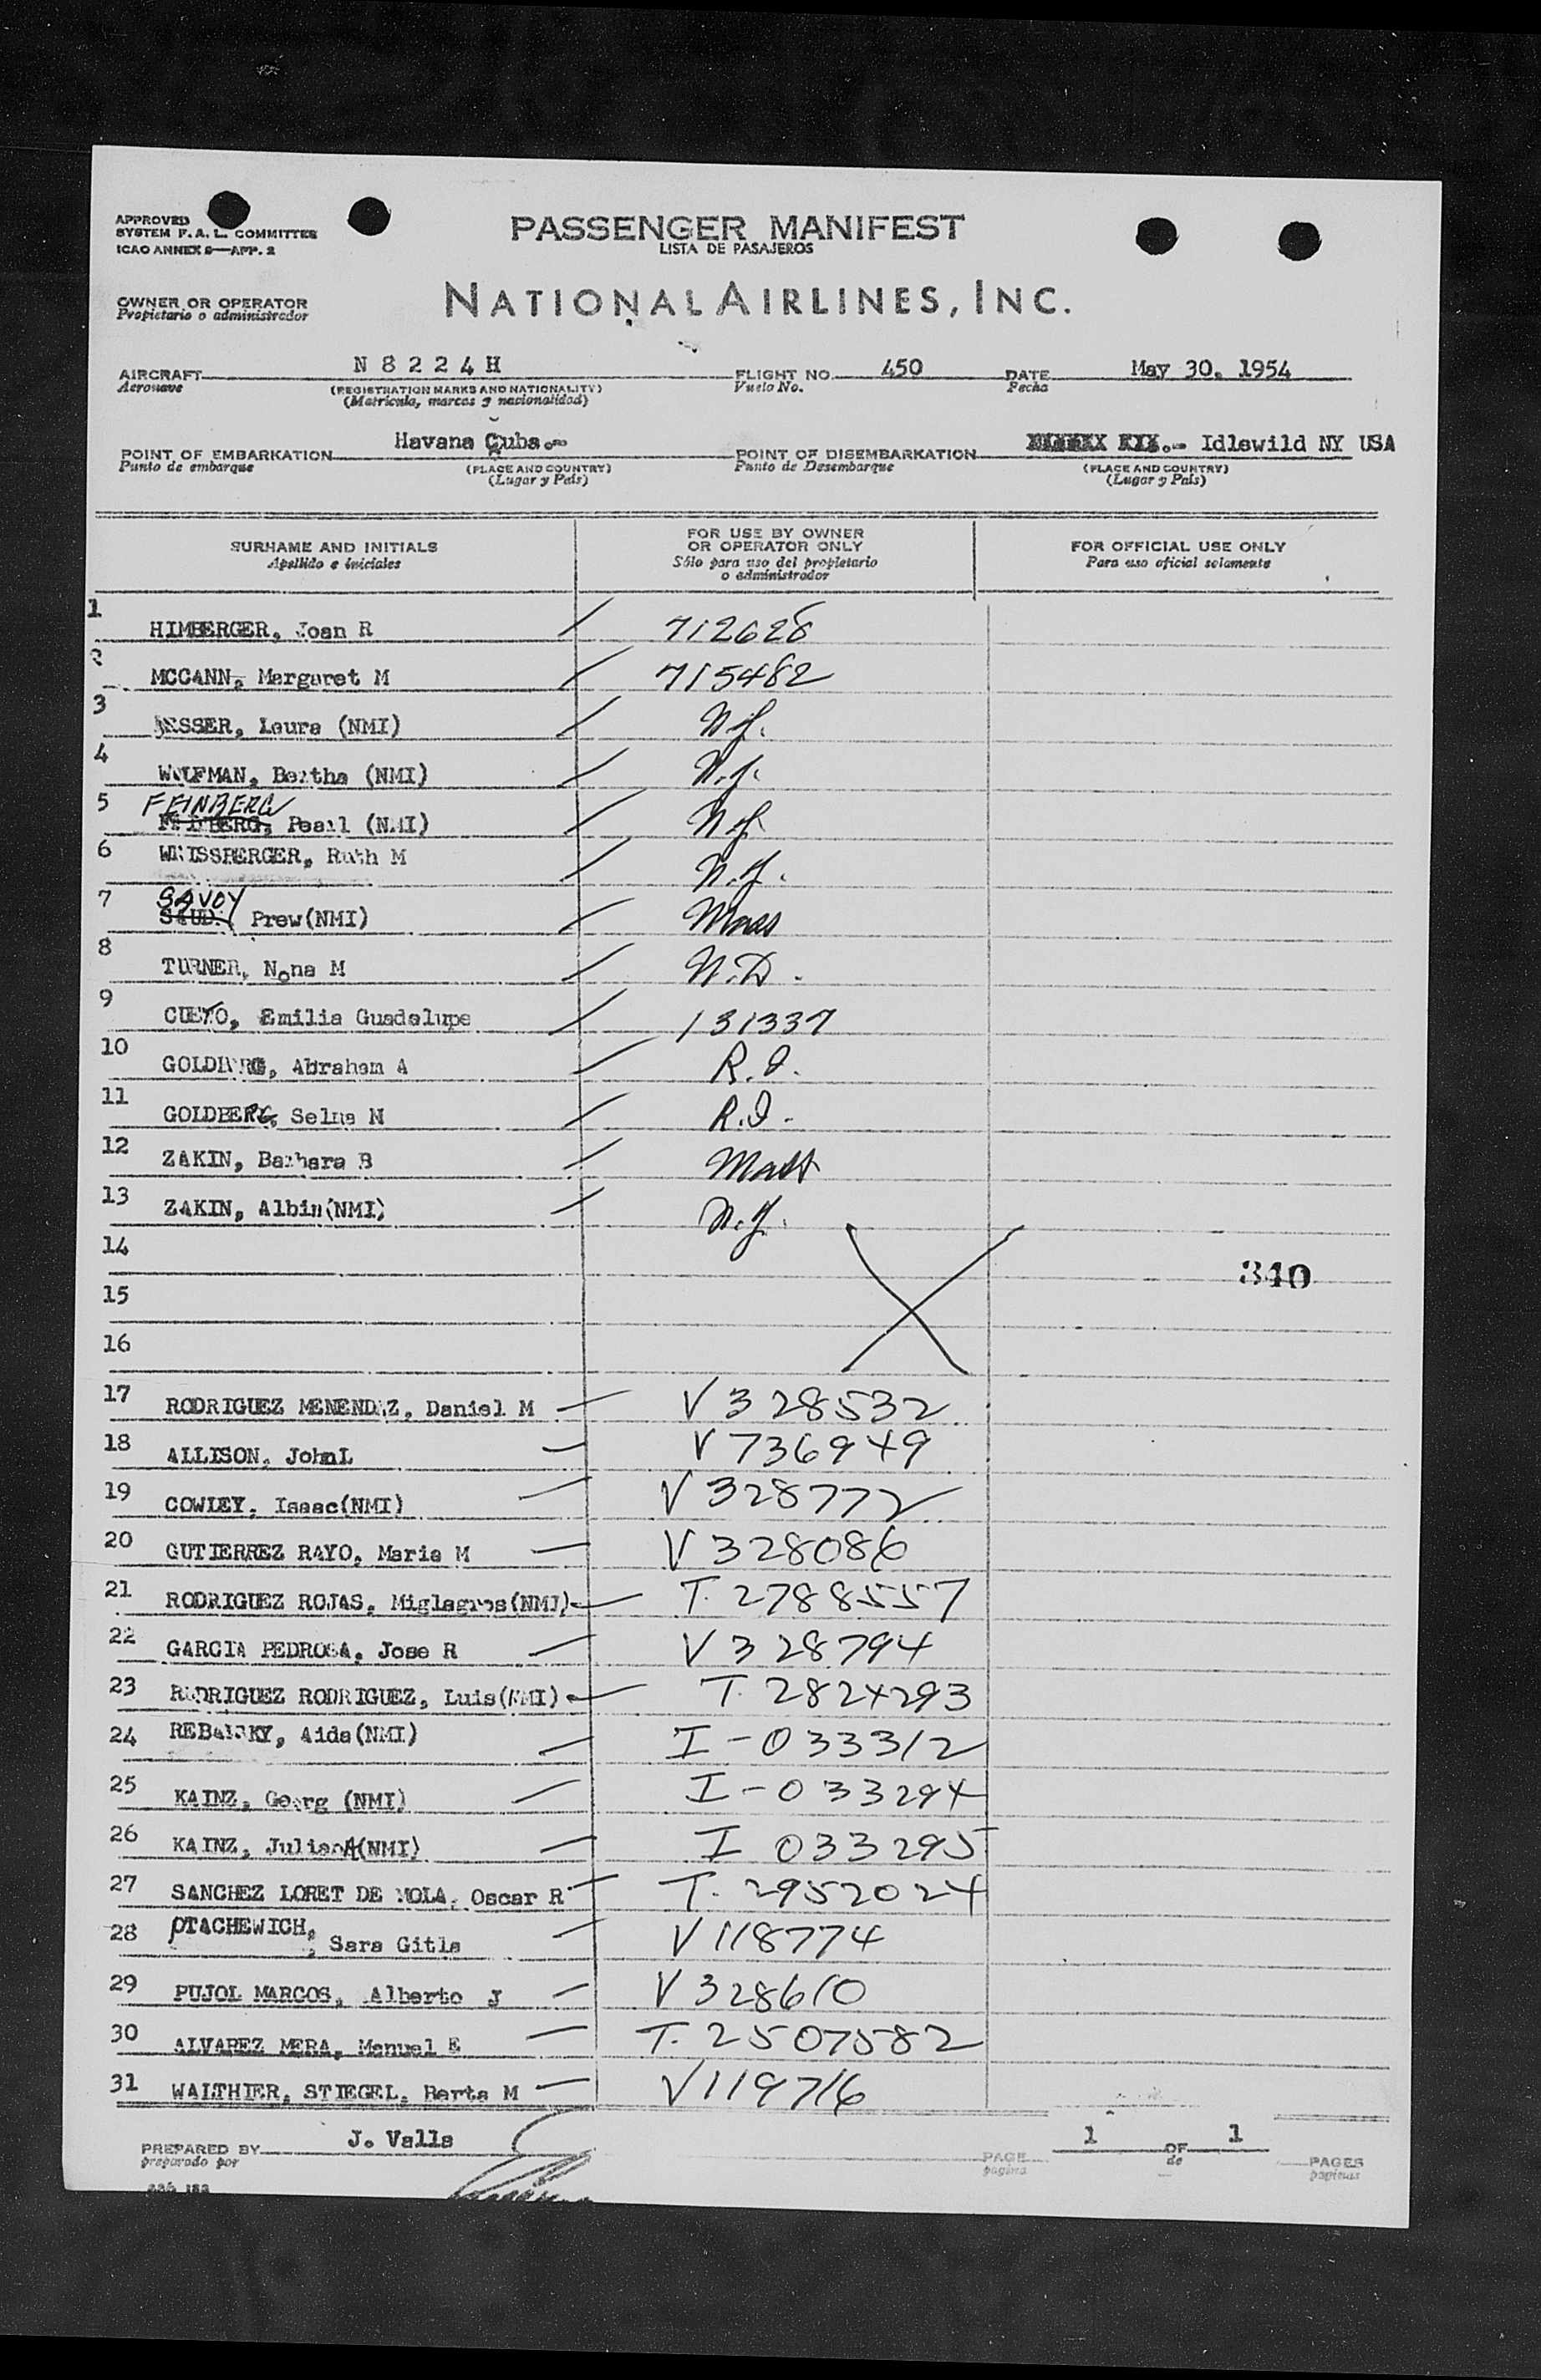 APPROVED
SYSTEM F. A. L. COMMITTEE
ICAO ANNEX 9—APP. 2
PASSENGER MANIFEST
LISTA DE PASAJEROS
OWNER OR OPERATOR
Propietario o administrador
NATIONAL AIRLINES, INC.
AIRCRAFT N 8 2 2 4 H FLIGHT NO. 450 DATE May 30. 1954
Aeronave (REGISTRATION MARKS AND NATIONALITY) Vuelo No. Fecha
(Matricula, marcas y nacionalidad)
POINT OF EMBARKATION Havana Cuba.- POINT OF DISEMBARKATION Idlewild NY USA
Punto de embarque (PLACE AND COUNTRY) Punto de Desembarque (PLACE AND COUNTRY)
(Lugar y País) (Lugar y País)
SURNAME AND INITIALS
Apellido e iniciales
FOR USE BY OWNER
OR OPERATOR ONLY
Sólo para uso del propietario
o administrador
FOR OFFICIAL USE ONLY
Para uso oficial solamente
1 HIMBERGER, Joan R / 712628
2 MCCANN, Margaret M / 715482
3 Laura (NMI) / N.J.
4 WOLFMAN, Bertha (NMI) / N.J.
5 FEINBERG Pearl (NMI) / N.J.
6 WEISSBERGER, Ruth M / N.J.
7 SAVOY Prew(NMI) / Mass
8 TURNER, Nona M / N.D.
9 CUETO, Emilia Guadelupe / 131337
10 GOLDBERG, Abraham A / R.I.
11 GOLDBERG, Selma N / R.I.
12 ZAKIN, Barbara B / Mass
13 ZAKIN, Albin(NMI) / N.J.
14
340
15
16
17 RODRIGUEZ MENENDEZ, Daniel M V 328532
18 ALLISON, JohnL V 736949
19 COWLEY, Isaac(NMI) V 328772
20 GUTIERREZ RAYO, Maria M V 328086
21 RODRIGUEZ ROJAS, Miglagros(NMI) T. 2788557
22 GARCIA PEDROSA, Jose R V 328794
23 RODRIGUEZ RODRIGUEZ, Luis(NMI) T. 2824293
24 Aida(NMI) I-033312
25 KAINZ, Georg (NMI) I-033294
26 KAINZ, (NMI) I 033295
27 SANCHEZ LORET DE MOLA, Oscar R T. 2952024
28 PTACHEWICH, , Sara Gitla V 118774
29 PUJOL MARCOS, Alberto J V 328610
30 ALVAREZ MERA, Manuel E T. 2507582
31 WALTHIER, STIEGEL, Berta M V 119716
PREPARED BY J. Valls PAGE 1 OF 1 PAGES
preparado por pagina de paginas